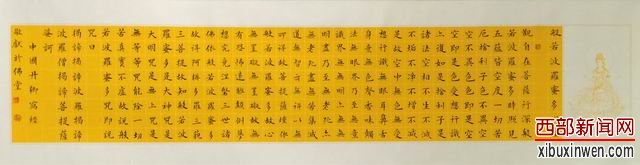 般若波羅蜜多心經
觀自在菩薩行深般
若波羅蜜多時照見
五蘊皆空度一切苦
厄舍利子色不異空
空不異色色即是空
空即是色受想行識
亦復如是舍利子是
諸法空相不生不滅
不垢不淨不增不減
是故空中無色無受
想行識無眼耳鼻舌
身意無色聲香味觸
法無眼界乃至無意
識界無無明亦無無
明盡乃至無老死亦
無老死盡無苦集滅
道無智亦無得以無
所得故菩提薩埵依
般若波羅蜜多故心
無罣礙無罣礙故無
有恐怖遠離顛倒夢
想究竟涅槃三世諸
佛依般若波羅蜜多
故得阿耨多羅三藐
三菩提故知般若波
羅蜜多是大神咒是
大明咒是無上咒是
無等等咒能除一切
苦真實不虛故說般
若波羅蜜多咒即說
咒曰
揭諦揭諦波羅揭諦
波羅僧揭諦菩提薩
婆訶
中國丹卿寫經
敬獻於佛堂
西部新闻网
xibuxinwen.com